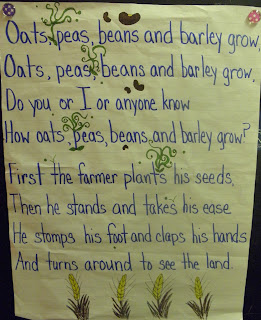 Oats, peas, beans and barley grow,
Oats, peas, beans and barley grow,
Do you or I or anyone know
How oats, peas, beans, and barley grow?
First the farmer plants his seeds,
Then he stands and takes his ease
He stomps his foot and claps his hands
And turns around to see the land.